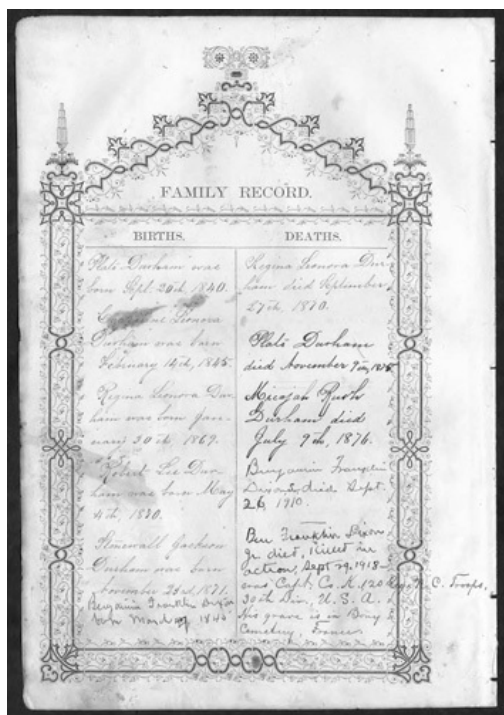 FAMILY RECORD.
BIRTHS.
Plato Durham was
born Sept. 20th, 1840.
Leonora
Durham was born
February 14th, 1845.
Regina Leonora Dur-
ham was born Jan-
uary 30th, 1869.
Robert Lee Dur-
ham was born May
4th, 1870.
Stonewall Jackson
Durham was born
November 23rd, 1871.
Benjamin Franklin Dixon
born March 1846
DEATHS.
Regina Leonora Dur-
ham died September
27th, 1870.
Plato Durham
died November 9th, 1875
Micajah Ruth
Durham died
July 9th, 1876.
Benjamin Franklin
Dixon, died Sept.
26, 1910.
Ben Franklin Dixon
Jr. died, killed in
action, Sept 29, 1918—
was Capt. Co. K, 120 Reg. N. C. Troops,
30th Div., U. S. A.
His grave is in Bony
Cemetery, France